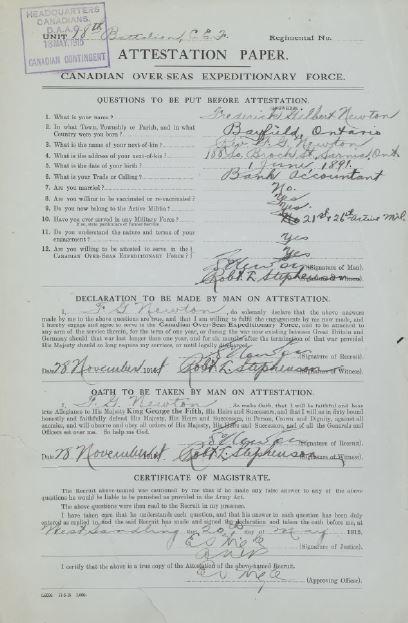 HEADQUARTERS
CANADIANS.
D.A.A.G.
18 MAY 1915
CANADIAN CONTINGENT
UNIT 18th Battalion, C.E.F. Regimental No.
ATTESTATION PAPER.
CANADIAN OVER-SEAS EXPEDITIONARY FORCE.
QUESTIONS TO BE PUT BEFORE ATTESTATION.
1. What is your name? Frederick Newton
2. In what Town, Township or Parish, and in what
Country were you born? Bayfield, Ontario
3. What is the name of your next-of-kin? Newton
4. What is the address of your next-of-kin? Brock St. Sarnia, Ont
5. What is the date of your birth? 1 June 1891
6. What is your Trade or Calling? Bank Accountant
7. Are you married? No.
8. Are you willing to be vaccinated or re-vaccinated? Yes
9. Do you now belong to the Active Militia? Yes.
10. Have you ever served in any Military Force? No 21st & 26th Active Mil.
If so, state particulars of former Service.
11. Do you understand the nature and terms of your
engagement? Yes
12. Are you willing to be attested to serve in the
CANADIAN OVER-SEAS EXPEDITIONARY FORCE? Yes
(Signature of Man).
Robt. L. Stephenson (Signature of Witness).
DECLARATION TO BE MADE BY MAN ON ATTESTATION.
I, F G Newton, do solemnly declare that the above answers
made by me to the above questions are true, and that I am willing to fulfil the engagements by me now made, and
I hereby engage and agree to serve in the Canadian Over-Seas Expeditionary Force, and to be attached to
any arm of the service therein, for the term of one year, or during the war now existing between Great Britain and
Germany should that war last longer than one year, and for six months after the termination of that war provided
His Majesty should so long require my services, or until legally discharged.
(Signature of Recruit).
Date 28 November 1914 Robt L. Stephenson (Signature of Witness).
OATH TO BE TAKEN BY MAN ON ATTESTATION.
I, F. G. Newton, do make Oath, that I will be faithful and bear
true Allegiance to His Majesty King George the Fifth, His Heirs and Successors, and that I will as in duty bound
honestly and faithfully defend His Majesty, His Heirs and Successors, in Person, Crown and Dignity, against all
enemies, and will observe and obey all orders of His Majesty, His Heirs and Successors, and of all the Generals and
Officers set over me. So help me God.
(Signature of Recruit).
Date 28 November 1914 Robt L. Stephenson (Signature of Witness).
CERTIFICATE OF MAGISTRATE.
The Recruit above-named was cautioned by me that if he made any false answer to any of the above
questions he would be liable to be punished as provided in the Army Act.
The above questions were then read to the Recruit in my presence.
I have taken care that he understands each question, and that his answer to each question has been duly
entered as replied to, and the said Recruit has made and signed the declaration and taken the oath before me, at
West Sandling this 20th day of May 1915.
(Signature of Justice).
I certify that the above is a true copy of the Attestation of the above-named Recruit.
(Approving Officer).